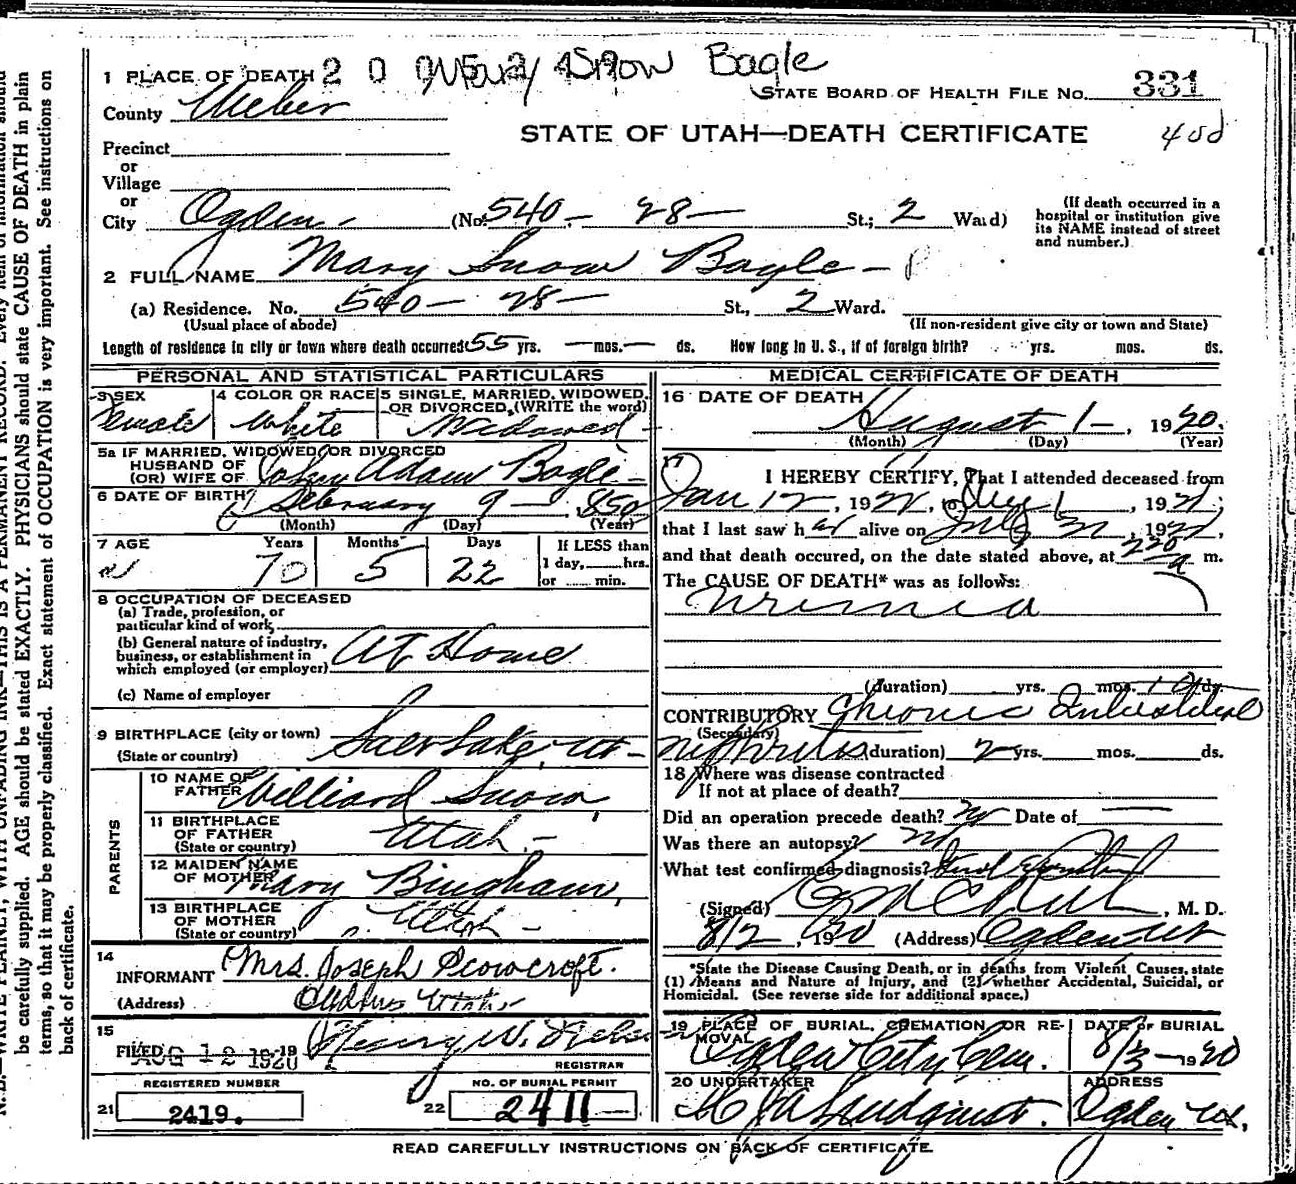 2 0 0 Mary Snow Bagle
1 PLACE OF DEATH
STATE BOARD OF HEALTH FILE No. 331
County Weber
STATE OF UTAH—DEATH CERTIFICATE
Precinct
or
Village
or
City Ogden - (No. 540 - 28 - St.; 2 Ward)
(If death occurred in a
hospital or institution give
its NAME instead of street
and number.)
2 FULL NAME Mary Snow Bagle -
(a) Residence. No. 540 - 28 - St., 2 Ward.
(Usual place of abode) (If non-resident give city or town and State)
Length of residence in city or town where death occurred 55 yrs. — mos. — ds. How long in U. S., if of foreign birth? yrs. mos. ds.
PERSONAL AND STATISTICAL PARTICULARS
3 SEX Female
4 COLOR OR RACE White
5 SINGLE, MARRIED, WIDOWED,
OR DIVORCED, (WRITE the word)
Widowed -
5a IF MARRIED, WIDOWED OR DIVORCED
HUSBAND OF
(OR) WIFE OF John Adam Bagle -
6 DATE OF BIRTH February 9 - 1850
(Month) (Day) (Year)
7 AGE Years Months Days If LESS than
70 5 22 1 day, hrs.
or min.
8 OCCUPATION OF DECEASED
(a) Trade, profession, or
particular kind of work,
(b) General nature of industry,
business, or establishment in
which employed (or employer) At Home
(c) Name of employer
9 BIRTHPLACE (city or town)
(State or country) Salt Lake, Ut -
PARENTS
10 NAME OF
FATHER Williard Snow,
11 BIRTHPLACE
OF FATHER
(State or country) Utah. -
12 MAIDEN NAME
OF MOTHER Mary Bingham,
13 BIRTHPLACE
OF MOTHER
(State or country) Utah -
14
INFORMANT Mrs. Joseph Scowcroft.
(Address) Utah
15
FILED AUG 12 1920 Henry W.
REGISTRAR
REGISTERED NUMBER
21 2419.
NO. OF BURIAL PERMIT
22 2411 —
MEDICAL CERTIFICATE OF DEATH
16 DATE OF DEATH
August 1 - , 1920.
(Month) (Day) (Year)
17
I HEREBY CERTIFY, That I attended deceased from
Jan 12 , 192 , to Aug 1 , 192 ,
that I last saw her alive on July 31 , 192 ,
and that death occured, on the date stated above, at 220 a m.
The CAUSE OF DEATH* was as follows:
Uremia
(duration) yrs. mos. 10 ds.
CONTRIBUTORY Chronic Interstitial
(Secondary)
nephritis (duration) 2 yrs. mos. ds.
18 Where was disease contracted
If not at place of death?
Did an operation precede death? No Date of —
Was there an autopsy? No
What test confirmed diagnosis?
(Signed) , M. D.
8/2 , 1920 (Address) Ogden Ut
*State the Disease Causing Death, or in deaths from Violent Causes, state
(1) Means and Nature of Injury, and (2) whether Accidental, Suicidal, or
Homicidal. (See reverse side for additional space.)
19 PLACE OF BURIAL, CREMATION OR RE-
MOVAL
Ogden City Cem.
DATE OF BURIAL
8/3 - 1920
20 UNDERTAKER
Lindquist.
ADDRESS
Ogden Ut,
READ CAREFULLY INSTRUCTIONS ON BACK OF CERTIFICATE
be carefully supplied. AGE should be stated EXACTLY. PHYSICIANS should state CAUSE OF DEATH in plain
terms, so that it may be properly classified. Exact statement of OCCUPATION is very important. See instructions on
back of certificate.